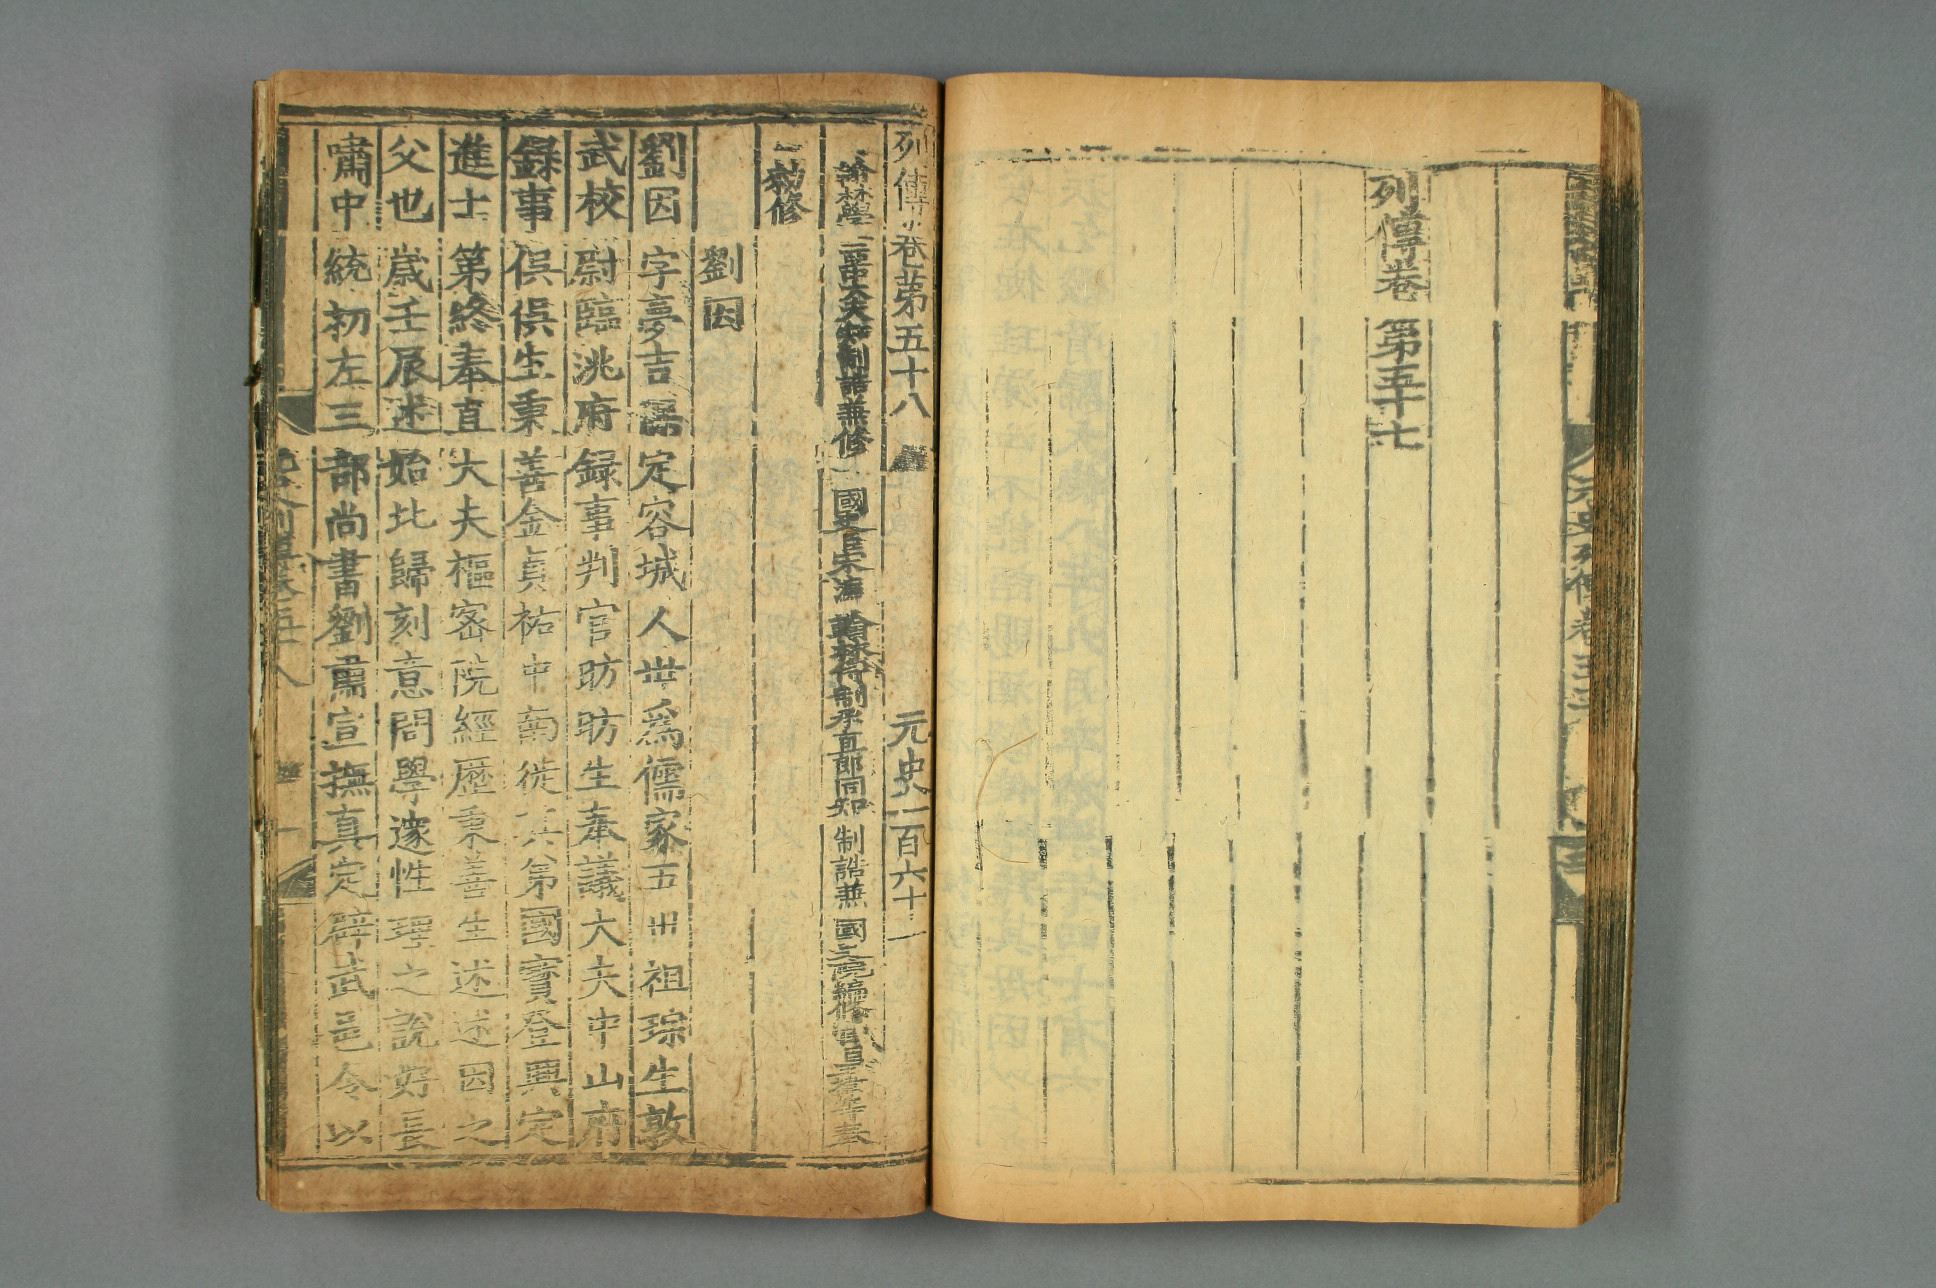 列傳卷第五十七
列傳卷第五十八
元史一百六十一
翰林學士亞中大夫知制誥兼修國史臣宋濂翰林待制承直郎同知制誥兼國史院編修官臣王禕等奉
勑修
劉因
劉因字夢吉保定容城人世爲儒家五世祖琮生敦
武校尉臨洮府録事判官昉昉生奉議大夫中山府
録事俁俁生秉善金貞祐中南徙其弟國寳登興定
進士第終奉直大夫樞密院經歷秉善生述述因之
父也歲壬辰述始北歸刻意問學邃性理之說好長
嘯中統初左三部尚書劉肅宣撫真定辟武邑令以